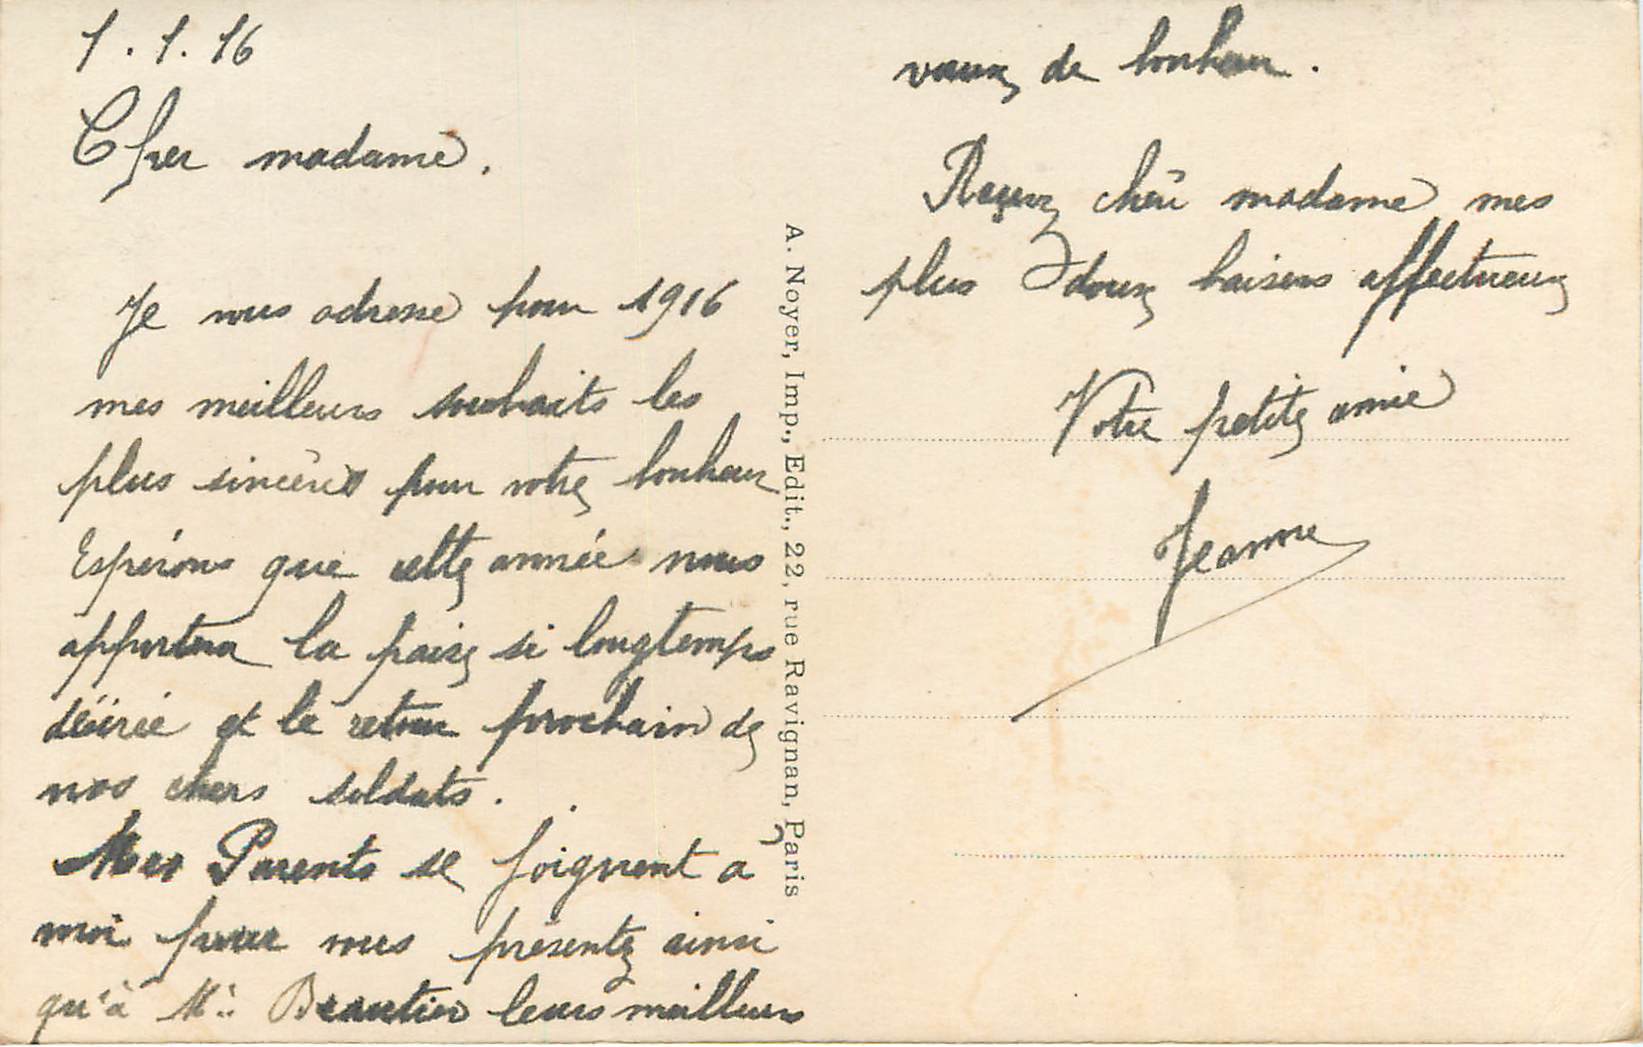 1.1.16
Cher madame,
Je vous adresse pour 1916
mes meilleurs souhaits les
plus sincères pour votre bonheur
Espérons que cette année nous
apportera la paix si longtemps
désirée et le retour prochain de
nos chers soldats.
Mes Parents se joignent a
moi pour vous présenter ainsi
qu'à Mr. Beautier leurs meilleurs
A. Noyer, Imp., Edit., 22, rue Ravignan, Paris
vœux de bonheur.
Reçevez chère madame mes
plus doux baisers affectueux
Votre petite amie
Jeanne